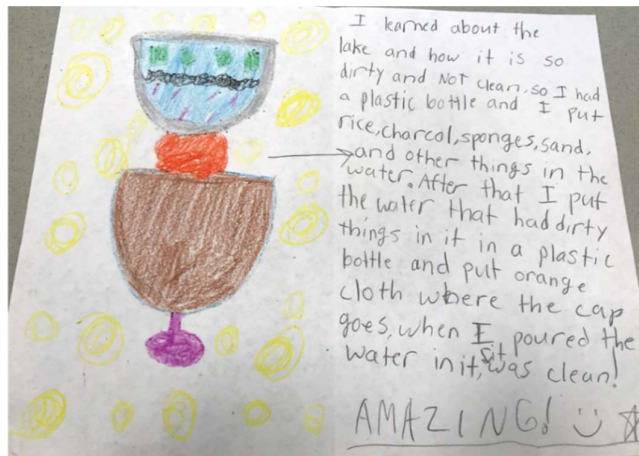 I learned about the
lake and how it is so
dirty and NOT clean, so I had
a plastic bottle and I put
rice, charcol, sponges, sand,
and other things in the
water. After that I put
the water that had dirty
things in it in a plastic
bottle and put orange
cloth where the cap
goes, when I poured the
water in it, it was clean!
AMAZING! :)